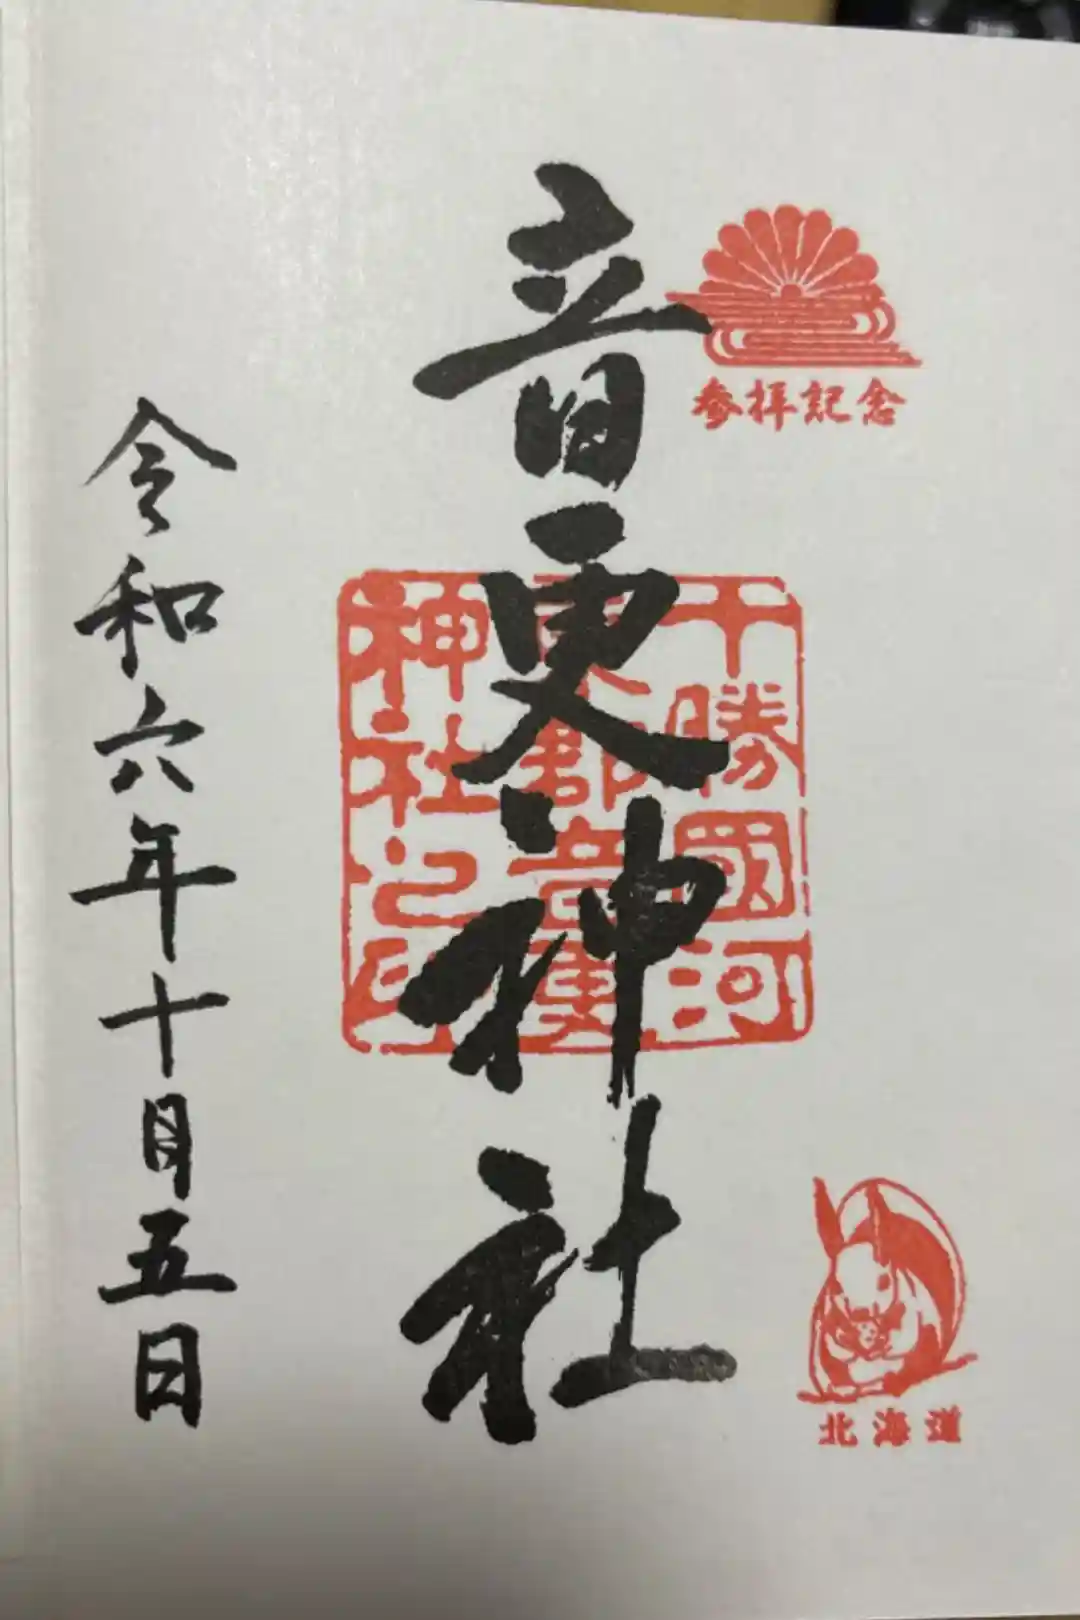 参拝記念
音更神社
十勝國河
東郡音更
神社之印
令和六年十月五日
北海道